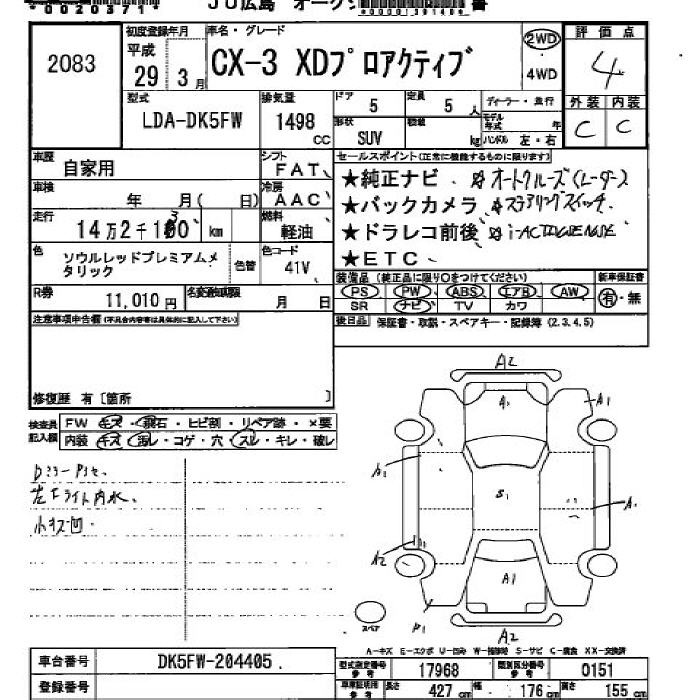 00203717
JU広島 オークション
2083
初度登録年月
平成
29年 3月
車名・グレード
CX-3 XDプロアクティブ
2WD
4WD
評価点
4
外装 内装
C C
型式
LDA-DK5FW
排気量
1498 cc
ドア 5
定員 5人
形状 SUV
積載 kg
ディーラー・並行
モデル年式 年
ハンドル 左・右
車歴 自家用
シフト FAT
車検 年 月( 日)
冷房 AAC
走行 km
燃料 軽油
色 ソウルレッドプレミアムメタリック
色替
色コード 41V
R券 11,010円
名変期限 月 日
セールスポイント(正常に機能するものに限ります)
★純正ナビ ☆オートクルーズ(レーダー)
★バックカメラ ☆ステアリングスイッチ
★ドラレコ前後 ☆i-ACTIVSENSE
★ETC
装備品(純正品に限り○をつけてください)
新車保証書
PS PW ABS エアB AW
SR ナビ TV カワ
有・無
後日品 保証書・取説・スペアキー・記録簿(2.3.4.5)
注意事項申告欄(不具合内容等は具体的に記入して下さい)
修復歴 有〔箇所 〕
検査員記入欄
FW キズ・飛石・ヒビ割・リペア跡・×要
内装 キズ・汚レ・コゲ・穴・スレ・キレ・破レ
左ライト内水
小キズ凹
A2
A1
A1
A1
S1
A1
A2
A1
A2
スペア
A-キズ E-エクボ U-凹み W-補修跡 S-サビ C-腐食 XX-交換済
車台番号 DK5FW-204405
登録番号
型式指定番号 参考 17968
類別区分番号 参考 0151
車車証明用 参考
長さ 427cm
幅 176cm
高さ 155cm